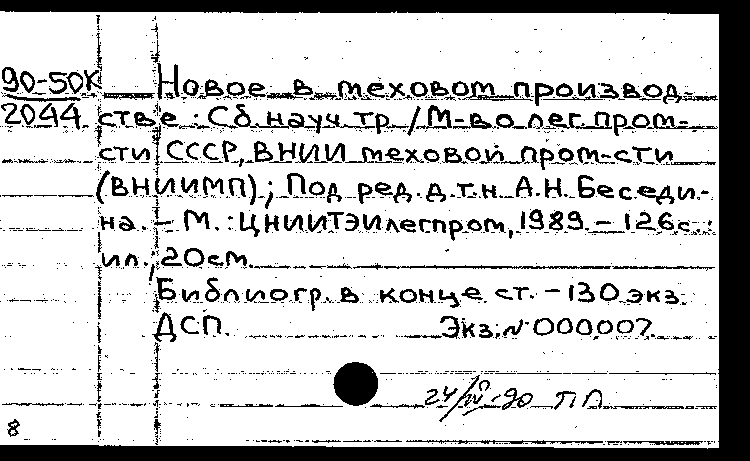 90-50К Новое в меховом производ-
2044 стве : Сб. науч. тр. / М-во лег. пром-
сти СССР, ВНИИ меховой пром-сти
(ВНИИМП) ; Под ред. д.т.н. А.Н. Беседи-
на. - М. : ЦНИИТЭИлегпром, 1989. - 126 с. :
ил. ; 20 см.
Библиогр. в конце ст. - 130 экз.
ДСП. Экз. № 000007.
90 ПП
8